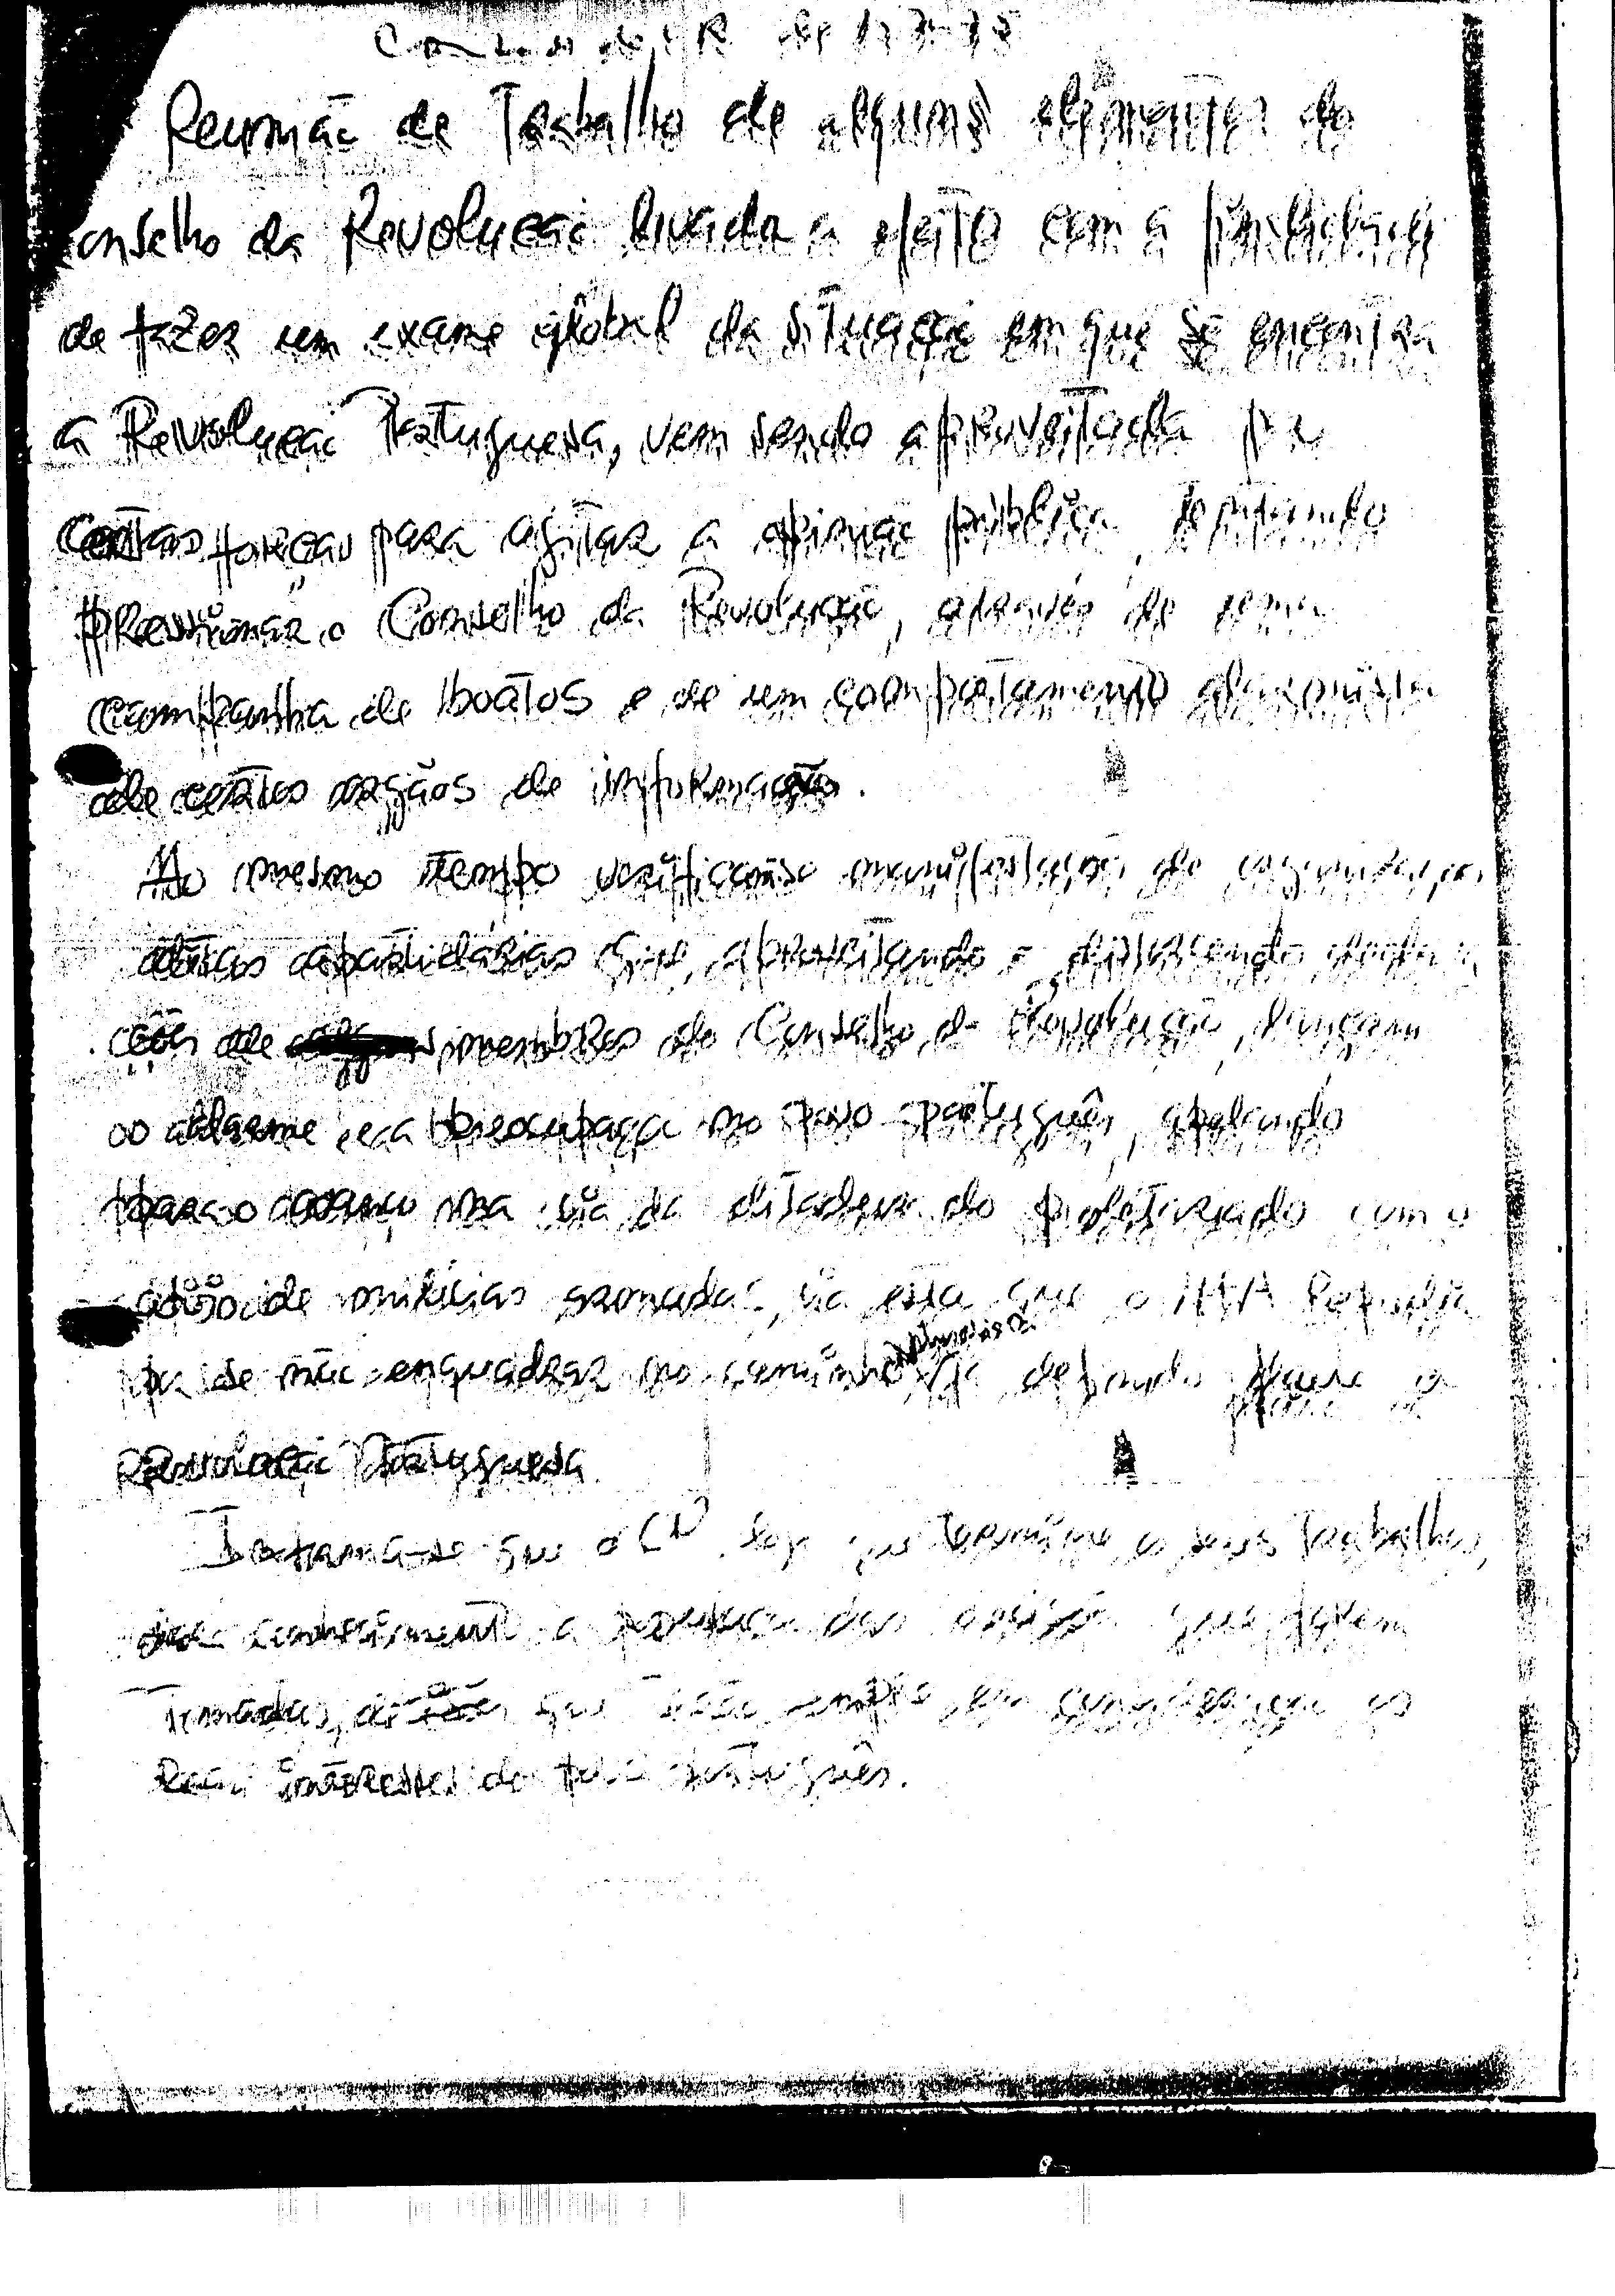 Reunião de Trabalho de alguns elementos do
onselho da Revolução levada a efeito com a finalidade
de fazer um exame global da situação em que se encontra
a Revolução Portuguesa, vem sendo aproveitada por
certas forças para agitar a opinião pública, tentando
pressionar o Conselho da Revolução, através de uma
campanha de boatos e de um comportamento alarmista
de certos orgãos de informação.
Ao mesmo tempo verificam-se manifestações de
ditas apartidárias que, aproveitando e distorcendo declara
ções de membros do Conselho da Revolução, lançam
o alarme e a preocupação no povo português, apelando
para o avanço na via da ditadura do proletariado com o
apoio de milícias armadas, via esta que o MFA repudia
por se não enquadrar no caminho já definido para a
Revolução Portuguesa.
Informa-se que o CR logo que termine os seus trabalhos,
dará conhecimento à população das decisões que forem
tomadas, que terão sempre em consideração os
reais interesses do povo português.